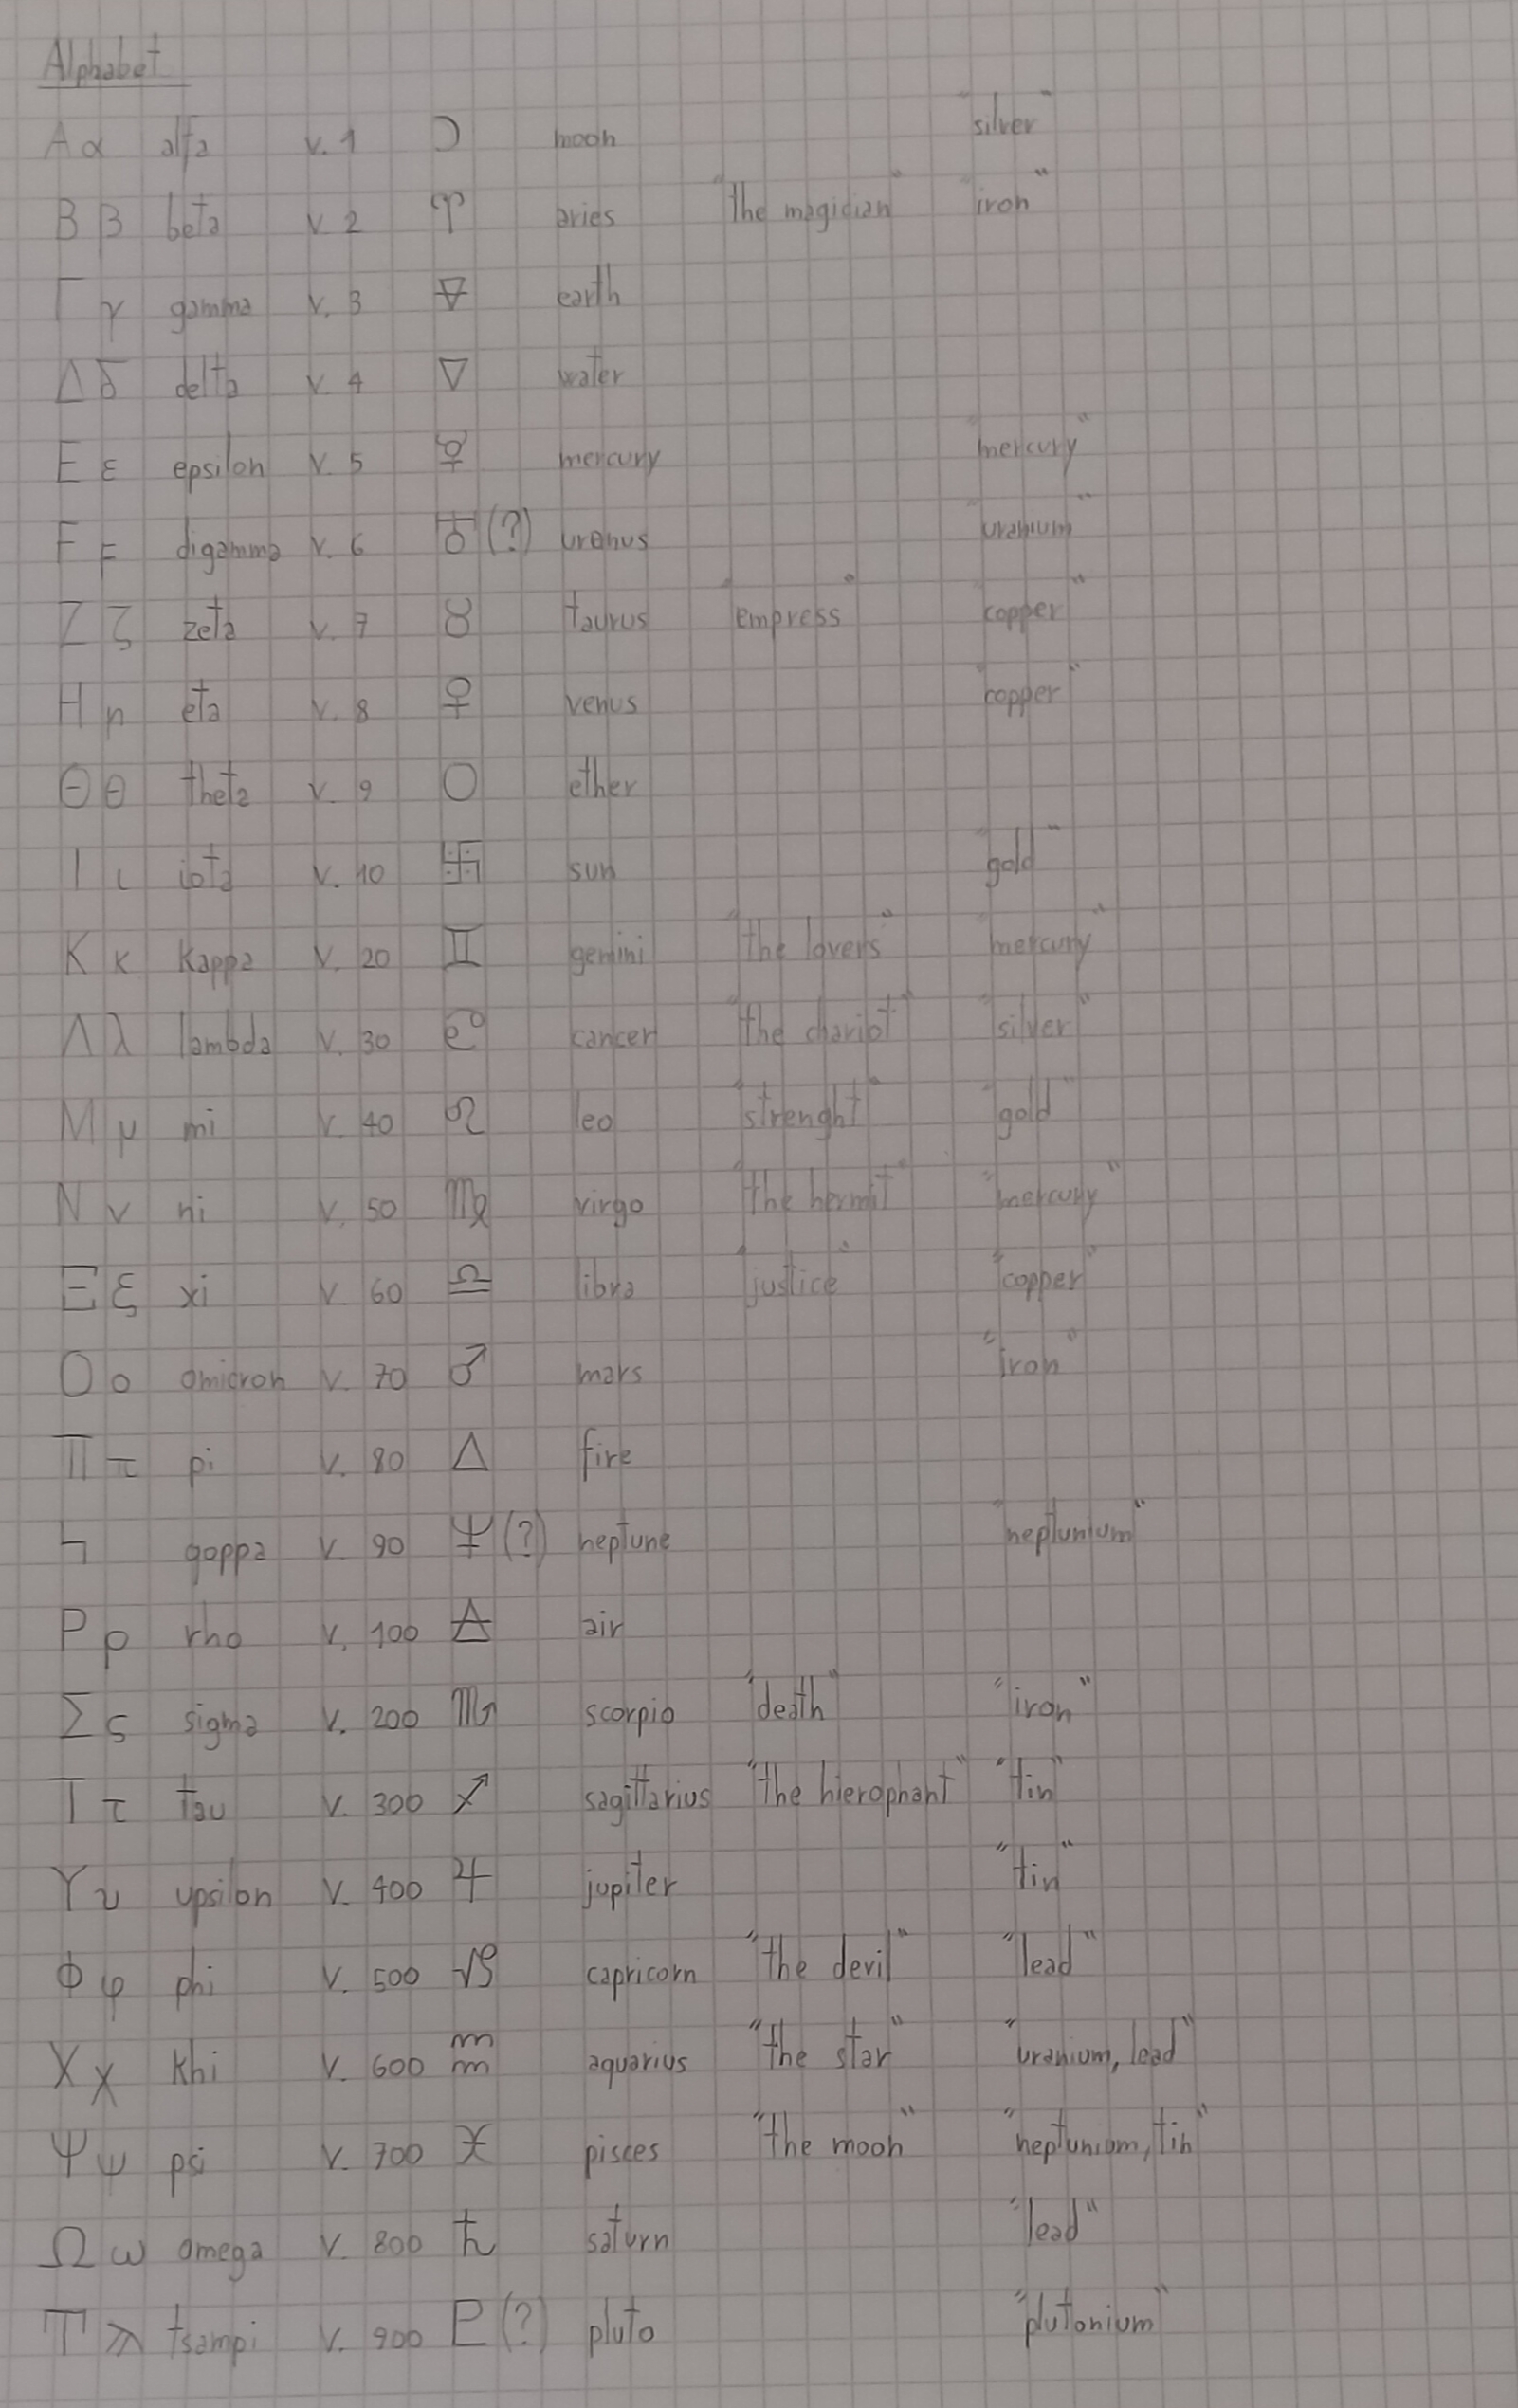 Alphabet
Α α alfa v. 1 ☽ moon "silver"
Β β beta v. 2 ♈ aries "the magician" "iron"
Γ γ gamma v. 3 🜃 earth
Δ δ delta v. 4 🜄 water
Ε ε epsilon v. 5 ☿ mercury "mercury"
Ϝ ϝ digamma v. 6 ♅ (?) uranus "uranium"
Ζ ζ zeta v. 7 ♉ taurus "empress" "copper"
Η η eta v. 8 ♀ venus "copper"
Θ θ theta v. 9 ○ ether
Ι ι iota v. 10 卐 sun "gold"
Κ κ kappa v. 20 ♊ gemini "the lovers" "mercury"
Λ λ lambda v. 30 ♋ cancer "the chariot" "silver"
Μ μ mi v. 40 ♌ leo "strenght" "gold"
Ν ν ni v. 50 ♍ virgo "the hermit" "mercury"
Ξ ξ xi v. 60 ♎ libra "justice" "copper"
Ο ο omicron v. 70 ♂ mars "iron"
Π π pi v. 80 🜂 fire
Ϟ qoppa v. 90 ♆ (?) neptune "neptunium"
Ρ ρ rho v. 100 🜁 air
Σ ς sigma v. 200 ♏ scorpio "death" "iron"
Τ τ tau v. 300 ♐ sagittarius "the hierophant" "tin"
Υ υ upsilon v. 400 ♃ jupiter "tin"
Φ φ phi v. 500 ♑ capricorn "the devil" "lead"
Χ χ khi v. 600 ♒ aquarius "the star" "uranium, lead"
Ψ ψ psi v. 700 ♓ pisces "the moon" "neptunium, tin"
Ω ω omega v. 800 ♄ saturn "lead"
Ͳ ϡ tsampi v. 900 ♇ (?) pluto "plutonium"